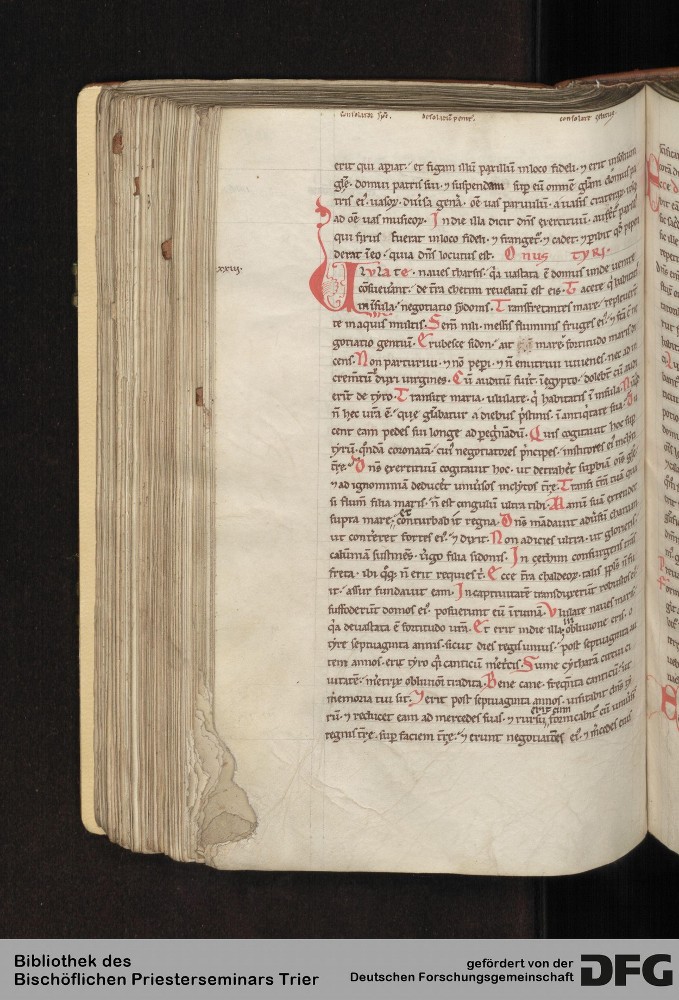 erit qui aꝑiat· et figam illū paxillū inloco fideli· ⁊ erit insolium
gl̄e· domui patris sui· ⁊ suspendam sup̄ eū omnē gl̄am domus pa
tris ei᷒· uasoꝝ diu͛sa gen͛a· om̄e uas paruulū· auasis
ad om̄e uas musicoꝝ· In die illa dicit dn̄s exercituū· auferet᷑ paxill᷒
qui fixus fuerat inloco fideli· ⁊ franget᷑· ⁊ cadet· ⁊ ꝑibit
derat ī eo· quia dn̄s locutus est· Onus TYRI·
xxiii.
Ululate· naues tharsis· q̄a uastata ē domus unde uenire
cōsueuerant· de t̄ra cethim reuelatū est eis· Tacete q̄ habitatis
ininsula· negotiatio sydonis· Transfretantes mare· repleuerūt
te inaquis multis· Sem̄ nili· messis fluminis fruges ei᷒· ⁊
gotiatio gentiū· Erubesce sidon· ait mare· fortitudo maris di
cens· Non parturiui· ⁊ nō peperi· ⁊ n̄ enutriui iuuenes· nec ad in
crem̄tū duxi uirgines· Cū auditū fuit͛ ī egypto· dolebūt cū audi
erīt de tyro· Transite maria· ululate· q̄ habitatis ī insula·
n̄ hec ur̄a ē· que gl̄iabatur a diebus pristinis· ī antiqitate sua·
cent eam pedes sui longe ad peregrinādū· Quis cogitauit hoc sup̄
tyrū· q̄ndā coronatā· cui᷒ negotiatores p̄ncipes· institores ei᷒ inclyti
t̄rę· Dn̄s exercituū cogitauit hoc· ut detraheret sup̄biā om̄is gl̄ię
⁊ ad ignominiā deduceret uniu͛sos inclytos t̄rę· Transi t̄rā tuā qua
si flum̄ filia maris· n̄ est cingulū ultra tibi· Manū suā extendit
supra mare· conturbauit regna· Dn̄s mandauit aduersū chanaan
ut contereret fortes ei᷒· ⁊ dixit· Non adicies ultra· ut glorieris·
calūniā sustinēs· u͛go filia sidonis· In cethim consurgens trans
freta· ibi q̄q; n̄ erit requies t᷑· Ecce t̄ra chaldeoꝝ· talis pp̄ls n̄ fu
it· assur fundauit eam· In captiuitatē transduxerūt robustos ei᷒·
suffoderūt domos ei᷒· posuerunt eū ī ruinā· Ululate naues maris·
q̄a deuastata ē fortitudo ur̄a· Et erit in die illa in obliuione eris· o
tyre septuaginta annis· sicut dies regis unius· post septuaginta au
tem annos· erit tyro q̄si canticū m͛etcis· Sume cytharā circui ci
uitatē· m͛etrix obliuioni tradita· Bene cane· freq̄nta canticū· ut
memoria tui sit· Et erit post septuaginta annos· uisitabit dn̄s ty
rū· ⁊ reducet eam ad mercedes suas· ⁊ rursū erit cum fornicabit᷑ cū uniu͛sis
regnis t̄rę· sup̄ faciem t̄rę· ⁊ erunt negotiatiōes ei᷒· ⁊ m͛cedes eius
Bibliothek des
Bischöflichen Priesterseminars Trier
gefördert von der
Deutschen Forschungsgemeinschaft
DFG